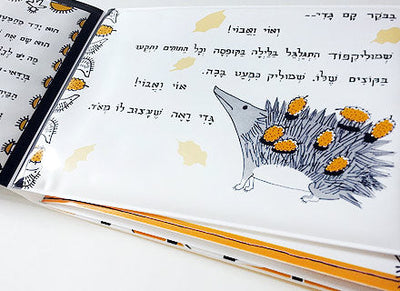 בַּבֹּקֶר קָם גָּדִי--
וַאוֹי וַאֲבוֹי!
שְׁמוּלִיקִפּוֹד הִתְגַּלְגֵּל בַּלַּיְלָה בַּקֻּפְסָה וְכָל הַתּוּתִים נִתְקְעוּ
בַּקּוֹצִים שֶׁלּוֹ. שְׁמוּלִיק כִּמְעַט בָּכָה.
אוֹי וַאֲבוֹי!
גָּדִי רָאָה שֶׁעָצוּב לוֹ מְאֹד.